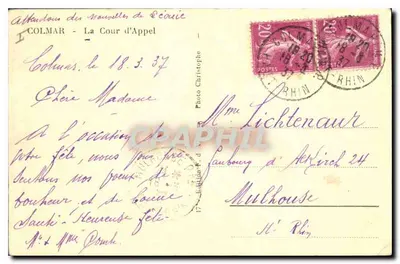 Attendons des nouvelles de
COLMAR - La Cour d'Appel
Colmar, le 18.3.37
Chère Madame
A l'occasion de
votre fête, nous vous pré
sentons nos voeux de
bonheur et de bonne
santé - Heureuse fête
Mr & Mme
Photo Christophe
Mme Lichtenaur
Faubourg d'Altkirch 24
Mulhouse
Ht Rhin
RHIN